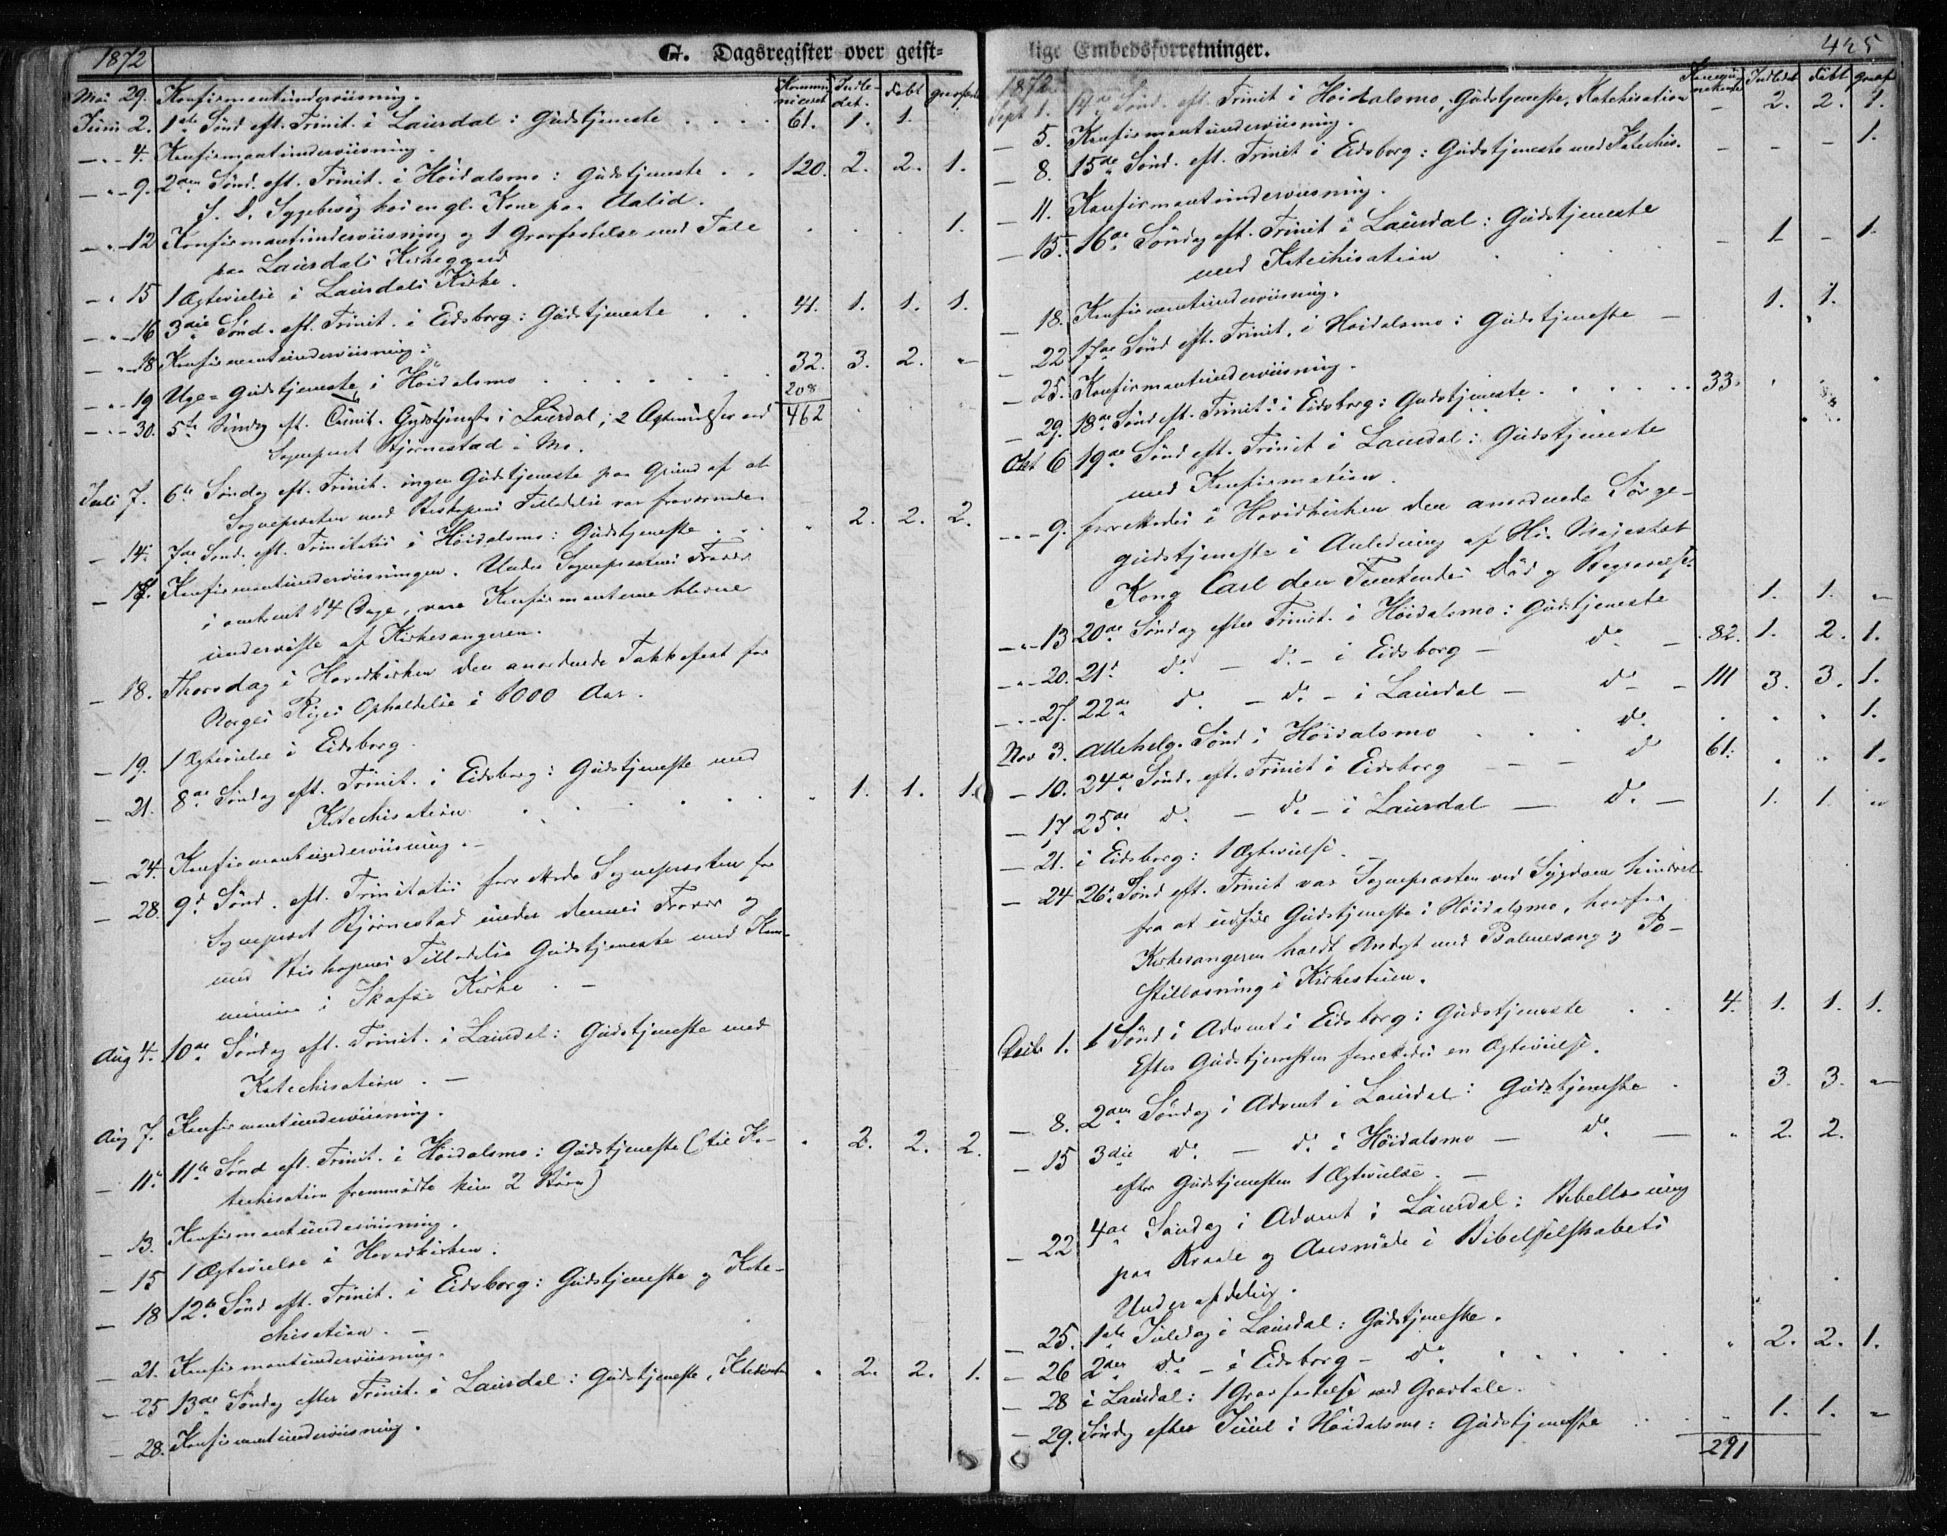 1872
G. Dagsregister over geist-
Kommunicanter Indledet døbt gravfæst
Mai 29. Konfirmantunderviisning.
Juni 2. 1ste Sønd eft. Trinit. i Laurdal: Gudstjeneste . . . . 61. 1. 1.
" 4. Konfirmantundervisning.
" 9. 2den Sønd. eft. Trinit. i Höidalsmo: Gudstjeneste . . 120. 2. 2. 1.
S. D. Sygebesög hos en gl. Kone paa
" 12 Konfirmantundervisning og 1 Gravfæstelse med Tale . . . 1.
paa Laurdals Kirkegaard
" 15 1 Ægtevielse i Laurdals Kirke.
" 16 3die Sønd. eft. Trinit. i Eidsborg: Gudstjeneste . . 41. 1. 1. 1.
" 18 Konfirmantundervisning.
" 19 Uge-Gudstjeneste i Höidalsmo . . . . . . 32. 3. 2. "
208
" 30. 5te Søndag eft. Trinit. Gudstjeneste i Laurdal; 2 Ægtevielser ved 462
Sognepræst Bjørnestad i Mo.
Juli 7. 6te Søndag eft. Trinit. ingen Gudstjeneste paa Grund af at
Sognepræsten med Biskopens Tilladelse var fraværende.
" 14. 7de Sønd. eft. Trinitatis i Höidalsmo: Gudstjeneste . . . " 2. 2. 2.
17. Konfirmantundervisningen. Under Sognepræstens Fravær
i omtrent 14 Dage, vare Konfirmanterne blevne
underviste af Kirkesangeren.
18. Thorsdag i Hovedkirken den anordnede Takkefest for
Norges Riges Opholdelse i 1000 Aar.
19. 1 Ægtevielse i Eidsborg.
21. 8de Søndag eft. Trinit. i Eidsborg: Gudstjeneste med
Katechisation . . . . . " 1. 1. 1.
24. Konfirmantundervisning. —
28. 9d Sønd. eft. Trinitatis forrettede Sognepræsten for
Sognepræst Bjørnestad under dennes Fravær og
med Biskopens Tilladelse Gudstjeneste med Kom-
munion i Skafsø Kirke . —
Aug 4. 10de Søndag eft. Trinit. i Laurdal: Gudstjeneste med
Katechisation . —
Aug 7. Konfirmantundervisning.
11. 11te Sønd eft. Trinit. i Höidalsmo: Gudstjeneste (til Ka- " 2. 2. 2.
techisation fremmødte kun 2 Börn)
13. Konfirmantundervisning.
15 1 Ægtevielse i Hovedkirken.
18 12te Sønd eft. Trinit. i Eidsborg: Gudstjeneste og Kate-
chisation. —
21. Konfirmantundervisning.
25 13de Søndag efter Trinit. i Laurdal: Gudstjeneste, Katechisation " 2. 2. 1.
28. Konfirmantundervisning.
lige Embedsforretninger.
425
1872
Indledet døbt gravf
Sept 1. 14de Sønd. eft. Trinit i Höidalsmo, Gudstjeneste, Katechisation — 2. 2. 1.
5. Konfirmantundervisning.
8. 15de Sønd. eft. Trinit i Eidsborg: Gudstjeneste med Katechis. — — — 1.
11. Konfirmantundervisning.
15. 16de Søndag eft. Trinit i Laurdal: Gudstjeneste
med Katechisation . . . — 1 — 1.
18. Konfirmantundervisning.
22 17de Sønd eft. Trinit. i Höidalsmo: Gudstjeneste — 1. 1.
25. Konfirmantundervisning.
29. 18de Sønd eft. Trinit. i Eidsborg: Gudstjeneste . . . . 33.
Octb 6 19de Sønd eft. Trinit i Laurdal: Gudstjeneste
med Konfirmation.
" 9. forrettedes i Hovedkirken den anordnede Sörge-
gudstjeneste i Anledning af Hs. Majestæt
Kong Carl den Femtendes Død og Begravelse
" 13 20de Søndag efter Trinit. i Höidalsmo: Gudstjeneste 1. 1. "
" 20. 21d do — do — i Eidsborg — do — 82. 1. 2. 1.
" 27. 22de do — do — i Laurdal — do — 111 3. 3. 1.
Nov 3. Allehelg. Sønd i Höidalsmo . . . do . . . 1.
10. 24de Sønd. eft. Trinit i Eidsborg — — do 61. . . 1.
17 25de do — do — i Laurdal — do — 1. 1. "
21. i Eidsborg: 1 Ægtevielse.
24 26. Sønd eft. Trinit var Sognepræsten ved Sygdom hindret
fra at udføre Gudstjeneste i Höidalsmo, hvorfor
Kirkesangeren holdt Andagt med Psalmesang og Po-
stillæsning i Kirkestuen.
Decb 1. 1 Sønd i Advent i Eidsborg: Gudstjeneste . . 4. 1. 1. 1.
Efter Gudstjenesten forrettedes en Ægtevielse.
8. 2den Søndag i Advent i Laurdal: Gudstjeneste . 3. 3. "
15 3die do — do i Höidalsmo — do — " 2. 2.
efter Gudstjenesten 1 Ægtevielse. —
22 4de Søndag i Advent i Laurdal: Bibellæsning
paa og Aarsmöde i Bibelselskabets
Underafdeling.
25. 1ste Juledag i Laurdal: Gudstjeneste.
26 2den do — i Eidsborg — do . . . . . " 2. 2. 1.
28 i Laurdal: 1 Gravfæstelse med Gravtale.
29. Søndag efter Juul i Höidalsmo: Gudstjeneste . . . " 1. 1. "
291